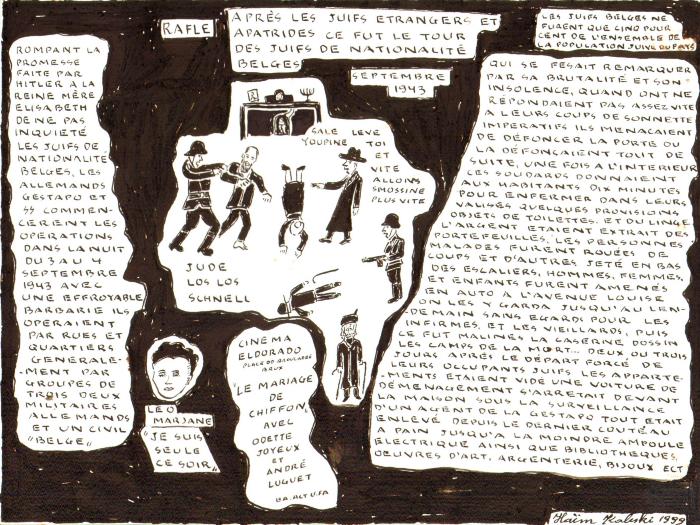 RAFLE
APRÈS LES JUIFS ETRANGERS ET
APATRIDES CE FUT LE TOUR
DES JUIFS DE NATIONALITÉ
BELGES
SEPTEMBRE
1943
LES JUIFS BELGES NE
FURENT QUE CINQ POUR
CENT DE L'ENSEMBLE DE
LA POPULATION JUIVE DU PAYS
ROMPANT LA
PROMESSE
FAITE PAR
HITLER A LA
REINE MÈRE
ELISABETH
DE NE PAS
INQUIETÉ
LES JUIFS DE
NATIONALITE
BELGES, LES
ALLEMANDS
GESTAPO ET
SS COMMEN-
CERENT LES
OPÉRATIONS
DANS LA NUIT
DU 3 AU 4
SEPTEMBRE
1943 AVEC
UNE EFFROYABLE
BARBARIE ILS
OPERAIENT
PAR RUES ET
QUARTIERS
GENERALE-
-MENT PAR
GROUPES DE
TROIS DEUX
MILITAIRES
ALLEMANDS
ET UN CIVIL
"BELGE"
SALE
YOUPINE
LEVE
TOI
ET
VITE
ALLONS
SMOSSINE
PLUS VITE
JUDE
LOS LOS
SCHNELL
LEO
MARJANE
"JE SUIS
SEULE
CE SOIR"
CINÉMA
ELDORADO
PLACE DE BROUCKÈRE
BRUX
"LE MARIAGE
DE
CHIFFON"
AVEC
ODETTE
JOYEUX
ET
ANDRÉ
LUGUET
BA. ACT U.FA
QUI SE FESAIT REMARQUER
PAR SA BRUTALITÉ ET SON
INSOLENCE, QUAND ONT NE
RÉPONDAIENT PAS ASSEZ VITE
A LEURS COUPS DE SONNETTE
IMPERATIFS ILS MENACAIENT
DE DÉFONCER LA PORTE OU
LA DÉFONÇAIENT TOUT DE
SUITE, UNE FOIS A L'INTERIEUR
LES SOUDARDS DONNAIENT
AUX HABITANTS DIX MINUTES
POUR ENFERMER DANS LEURS
VALISES QUELQUES PROVISIONS
OBJETS DE TOILETTES, ET DU LINGE
L'ARGENT ETAIENT EXTRAIT DES
PORTEFEUILLES, LES PERSONNES
MALADES FURENT ROUÉES DE
COUPS ET D'AUTRES JETÉ EN BAS
DES ESCALIERS, HOMMES, FEMMES,
ET ENFANTS FURENT AMENÉS
EN AUTO A L'AVENUE LOUISE
ON LES Y GARDA JUSQU'AU LEN-
DEMAIN SANS EGARDI POUR LES
INFIRMES, ET LES VIEILLARDS, PUIS
CE FUT MALINES LA CASERNE DOSSIN
LES CAMPS DE LA MORT... DEUX OU TROIS
JOURS APRÈS LE DÉPART FORCÉ DE
LEURS OCCUPANTS JUIFS LES APPARTE-
-MENTS ÉTAIENT VIDÉ UNE VOITURE DE
DÉMENAGEMENT S'ARRETAIT DEVANT
LA MAISON SOUS LA SURVEILLANCE
D'UN AGENT DE LA GESTAPO TOUT ETAIT
ENLEVÉ DEPUIS LE DERNIER COUTEAU
A PAIN JUSQU'A LA MOINDRE AMPOULE
ELECTRIQUE AINSI QUE BIBLIOTHEQUES,
OEUVRES D'ART, ARGENTERIE, BIJOUX ECT
Haïm Kaliski 1999